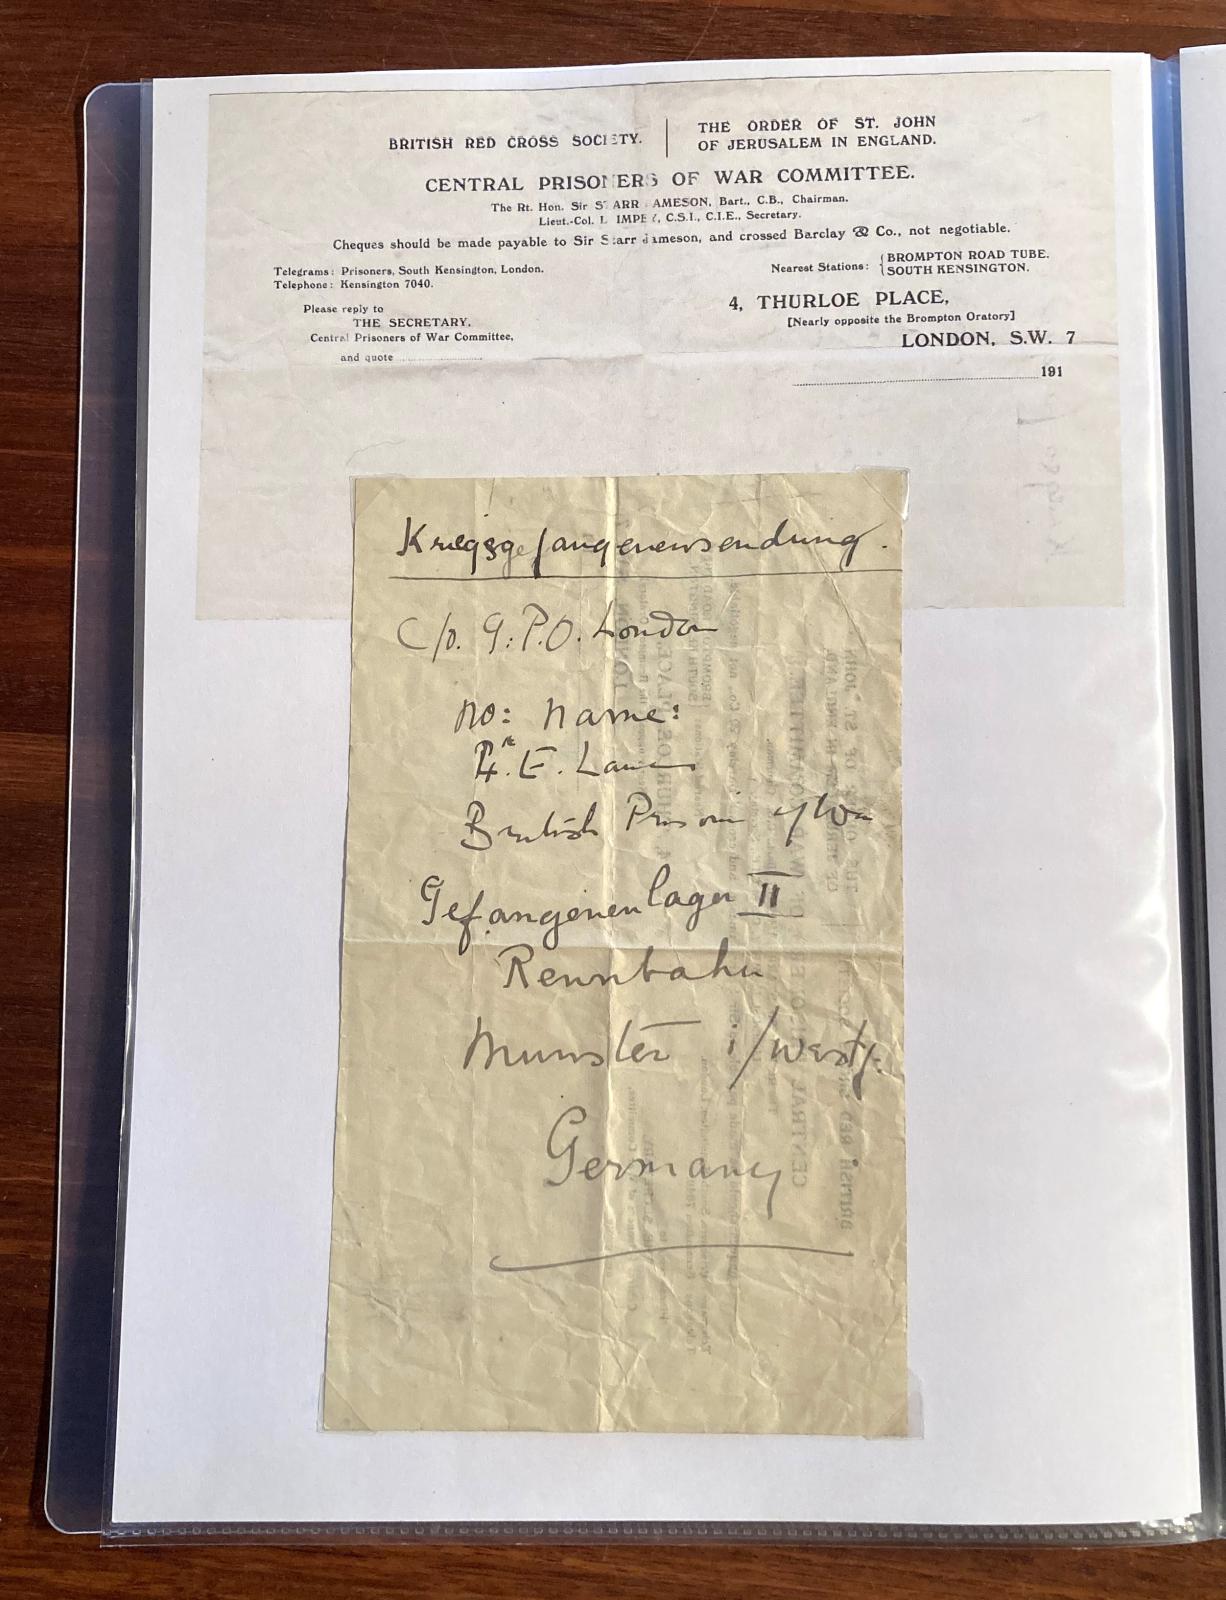 BRITISH RED CROSS SOCIETY.
THE ORDER OF ST. JOHN
OF JERUSALEM IN ENGLAND.
CENTRAL PRISONERS OF WAR COMMITTEE.
The Rt. Hon. Sir STARR JAMESON, Bart., C.B., Chairman.
Lieut.-Col. IMPEY, C.S.I., C.I.E., Secretary.
Cheques should be made payable to Sir Starr Jameson, and crossed Barclay & Co., not negotiable.
Telegrams: Prisoners, South Kensington, London.
Telephone: Kensington 7040.
Nearest Stations: { BROMPTON ROAD TUBE.
SOUTH KENSINGTON.
Please reply to
THE SECRETARY,
Central Prisoners of War Committee,
and quote
4, THURLOE PLACE,
[Nearly opposite the Brompton Oratory]
LONDON, S.W. 7
191
Kriegsgefangenensendung.
C/o. G.P.O. London
No: Name:
E.
British Prisoner of War
Gefangenenlager II
Rennbahn
Munster /Westf:
Germany